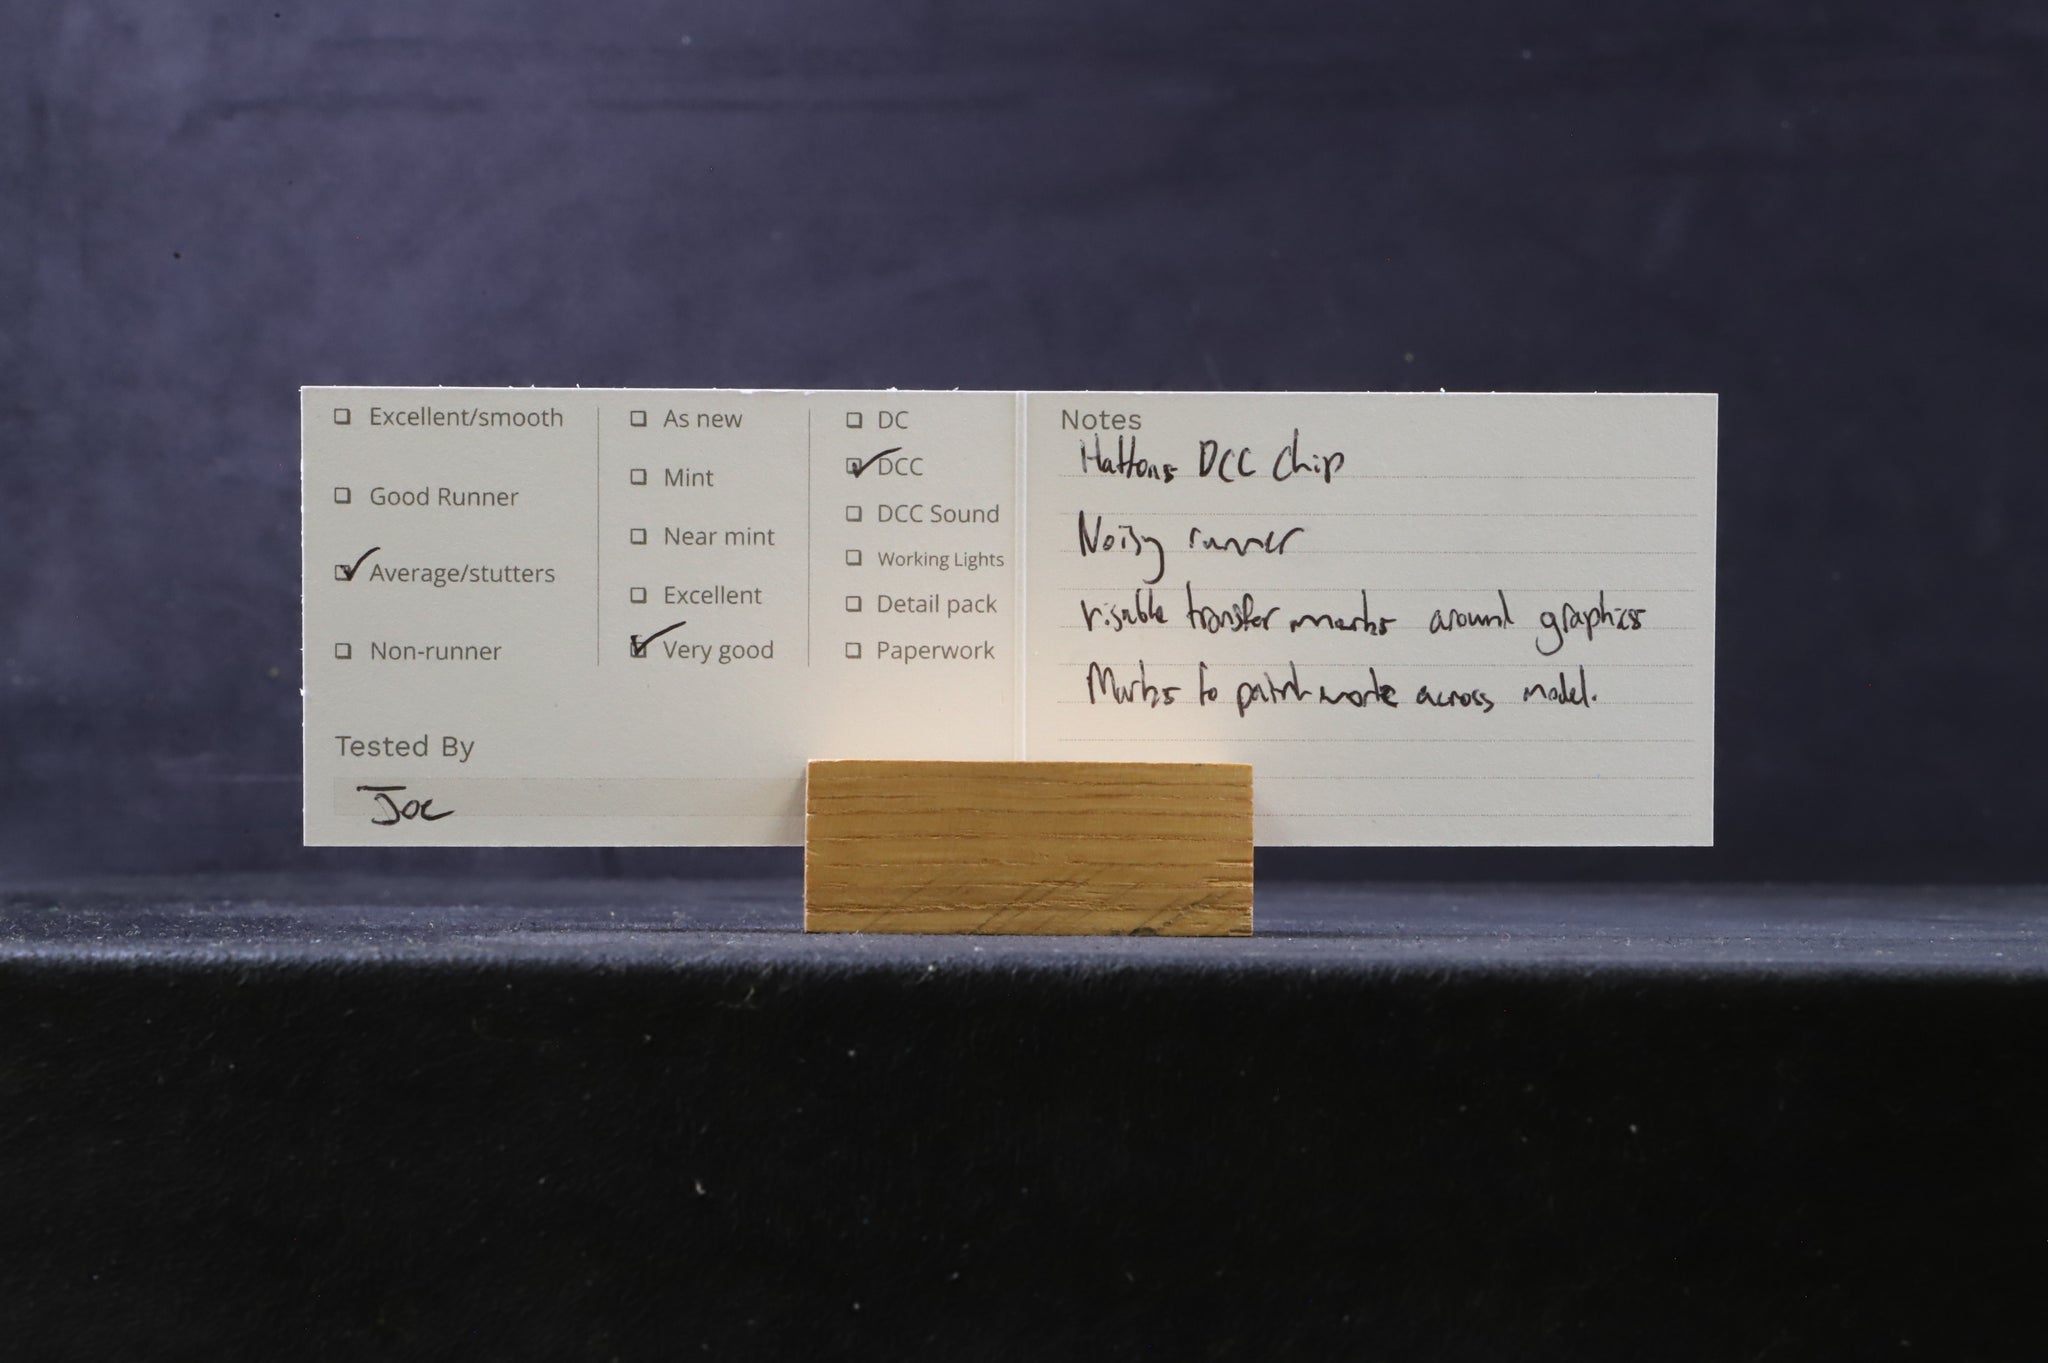 Excellent/smooth
Good Runner
Average/stutters
Non-runner
As new
Mint
Near mint
Excellent
Very good
DC
DCC
DCC Sound
Working Lights
Detail pack
Paperwork
Tested By
Joe
Notes
Hattons DCC Chip
Noisy runner
visible transfer marks around graphics
Marks to paintwork across model.